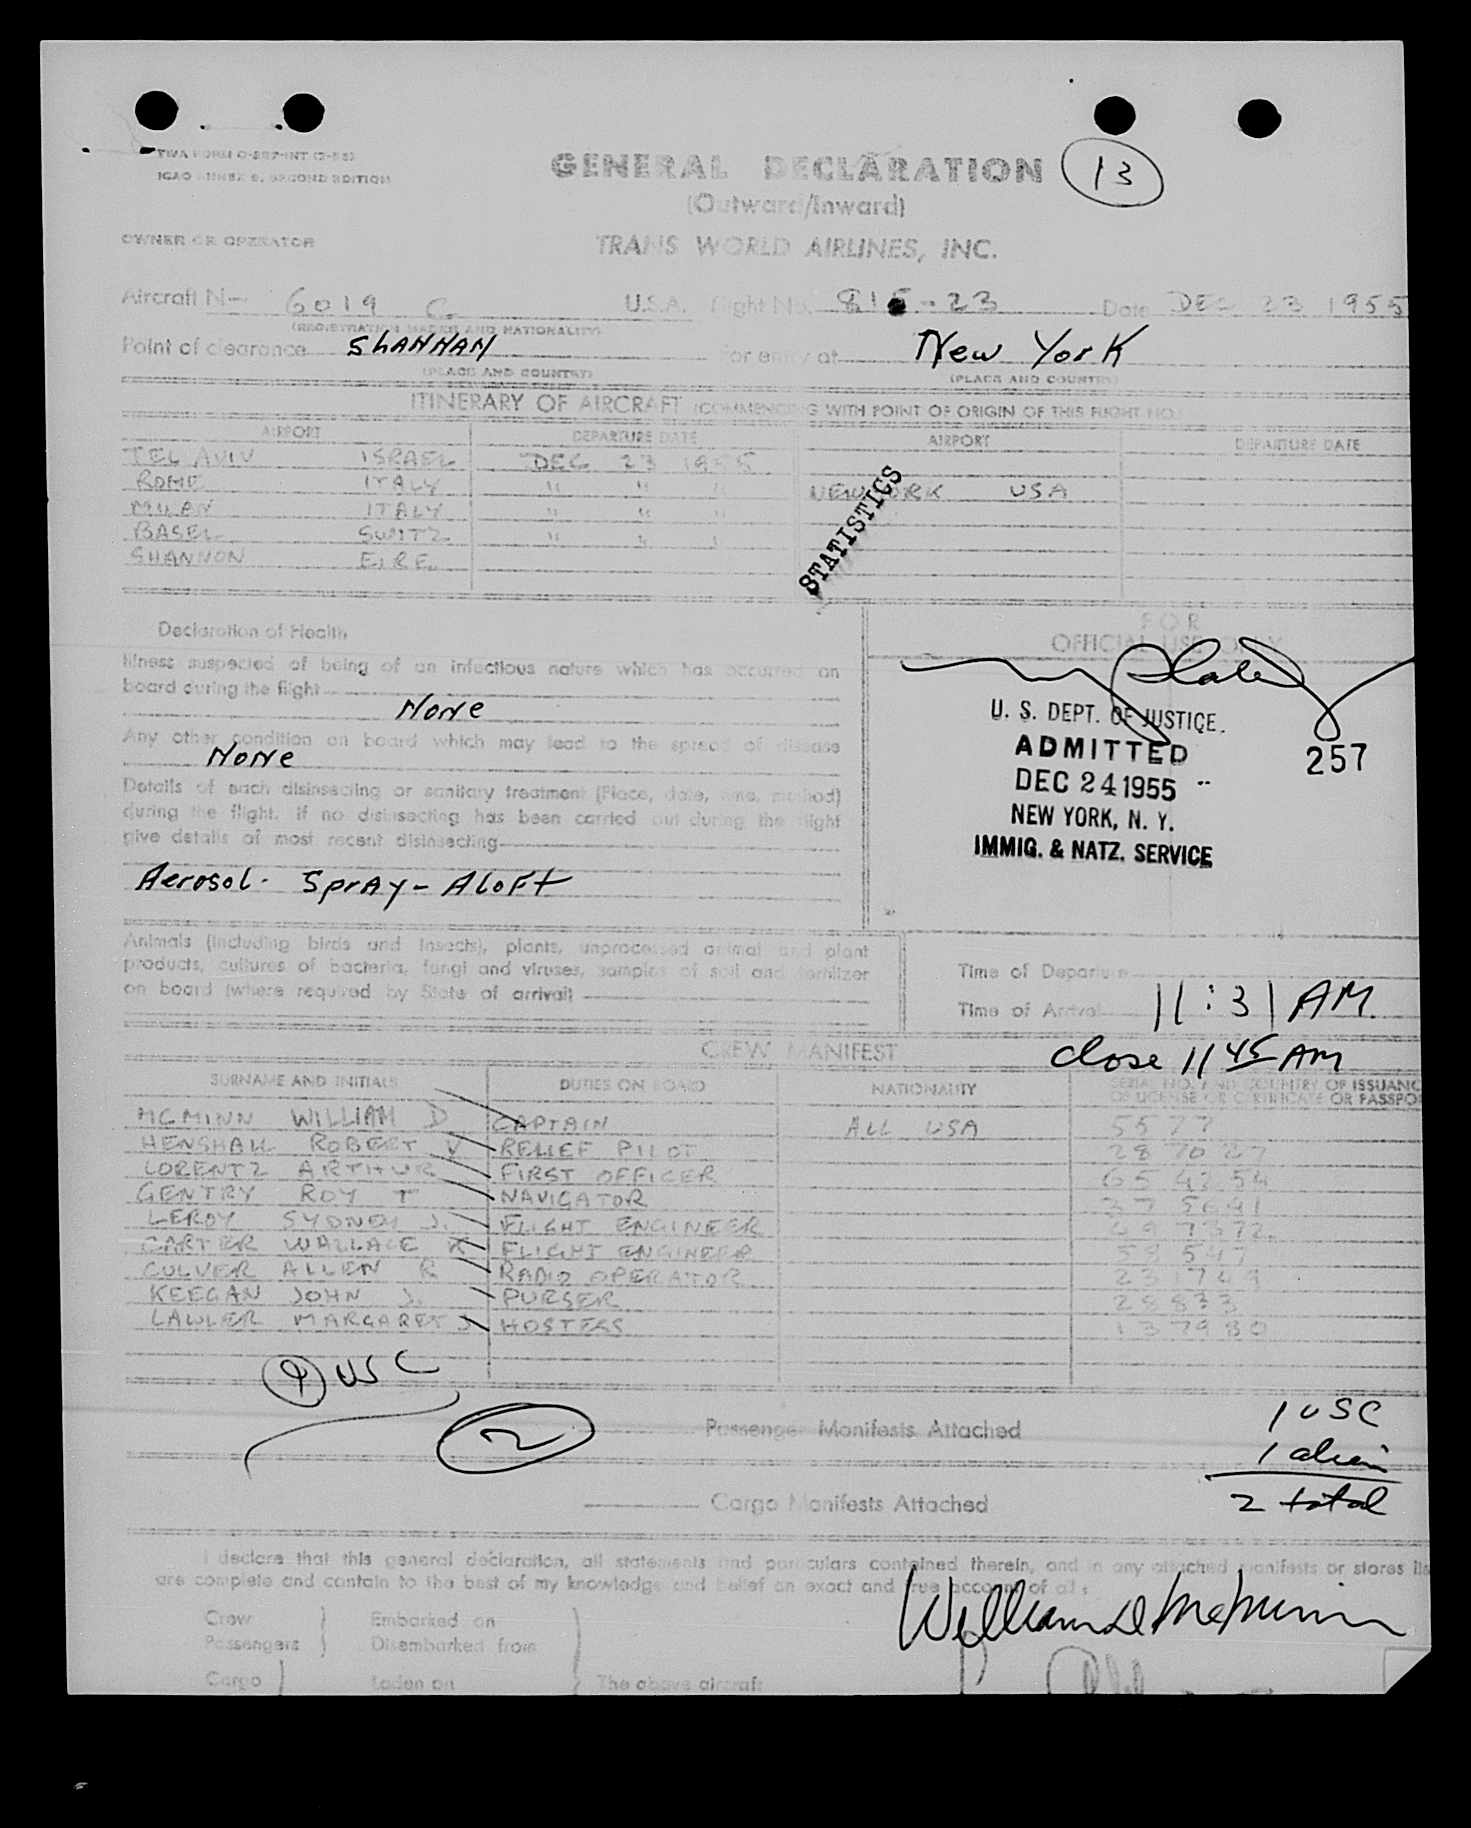 TWA FORM O-887-INT (2-55)
ICAO ANNEX 9, SECOND EDITION
GENERAL DECLARATION
13
(Outward/Inward)
OWNER OR OPERATOR
TRANS WORLD AIRLINES, INC.
Aircraft N— 6019 C U.S.A. Flight No. 815-23 Date DEC 23 1955
(REGISTRATION MARKS AND NATIONALITY)
Point of clearance SHANNAN For entry at New York
(PLACE AND COUNTRY) (PLACE AND COUNTRY)
ITINERARY OF AIRCRAFT (COMMENCING WITH POINT OF ORIGIN OF THIS FLIGHT NO.)
AIRPORT DEPARTURE DATE AIRPORT DEPARTURE DATE
TEL AVIV ISRAEL DEC 23 1955
ROME ITALY " " " NEW YORK USA
MILAN ITALY " " "
BASEL SWITZ. " " "
SHANNON EIRE
STATISTICS
Declaration of Health
Illness suspected of being of an infectious nature which has occurred on
board during the flight
None
Any other condition on board which may lead to the spread of disease
None
Details of each disinsecting or sanitary treatment (Place, date, time, method)
during the flight. If no disinsecting has been carried out during the flight
give details of most recent disinsecting
Aerosol - Spray - Aloft
FOR
OFFICIAL USE ONLY
U. S. DEPT. OF JUSTICE.
ADMITTED
257
DEC 24 1955
NEW YORK, N. Y.
IMMIG. & NATZ. SERVICE
Animals (including birds and insects), plants, unprocessed animal and plant
products, cultures of bacteria, fungi and viruses, samples of soil and fertilizer
on board (where required by State of arrival)
Time of Departure
Time of Arrival 11:31 AM.
close 11 45 AM
CREW MANIFEST
SURNAME AND INITIALS DUTIES ON BOARD NATIONALITY SERIAL NO. AND COUNTRY OF ISSUANC
OF LICENSE OR CERTIFICATE OR PASSPO
MCMINN WILLIAM D CAPTAIN ALL USA 5577
HENSHALL ROBERT V RELIEF PILOT 287027
LORENTZ ARTHUR FIRST OFFICER
GENTRY ROY T NAVIGATOR
LEROY SYDNEY J. FLIGHT ENGINEER
CARTER WALLACE K FLIGHT ENGINEER
CULVER ALLEN R RADIO OPERATOR 231749
KEEGAN JOHN J. PURSER 28833
LAWLER MARGARET J HOSTESS 137980
9 USC
2
Passenger Manifests Attached
1 USC
1 alien
2 total
Cargo Manifests Attached
I declare that this general declaration, all statements and particulars contained therein, and in any attached manifests or stores lis
are complete and contain to the best of my knowledge and belief an exact and true account of all:
William D McMinn
Crew Embarked on
Passengers Disembarked from
Cargo Laden on The above aircraft